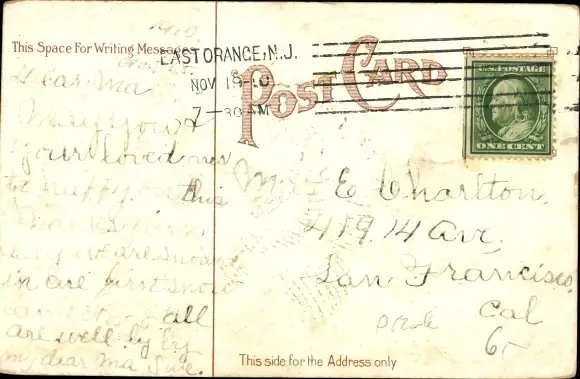 This Space For Writing Messages
EAST ORANGE, N.J.
NOV 18 10
7-30 AM
POST CARD
U.S. POSTAGE
ONE CENT
Dear Ma
May you &
your loved ones
be happy on this
we are snowed
in are first snow
all
are well by by
my dear Ma
Mrs E Charlton.
419. 14 Ave,
San Francisco.
Cal
This side for the Address only